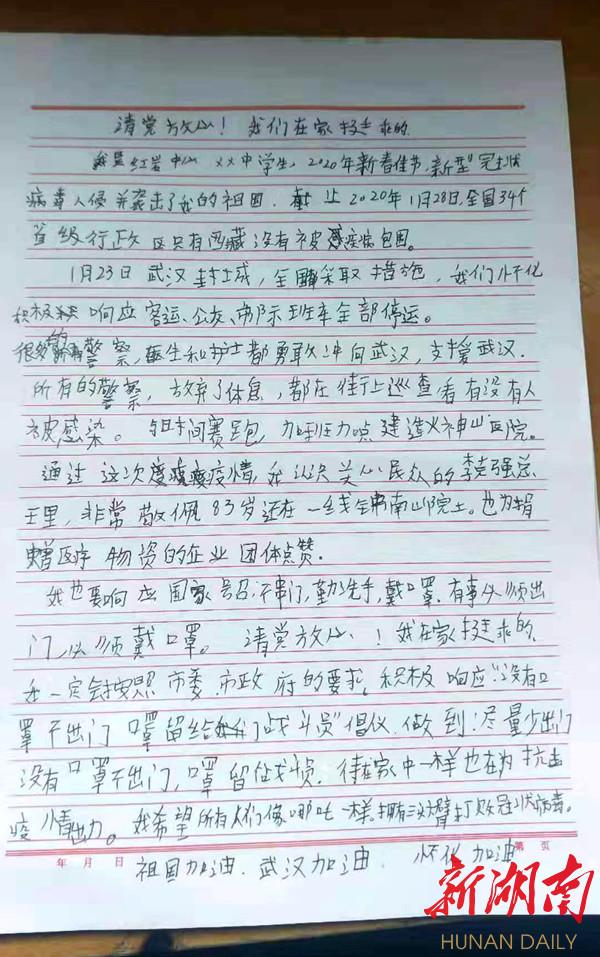 请党放心！我们在家挺乖的
我是红岩中心 XX中学生，2020年新春佳节，新型冠状
病毒入侵并袭击了我的祖国。截止2020年1月28日，全国34个
省级行政区只有西藏没有被疾病包围。
1月23日 武汉封城，全国采取措施，我们怀化
积极响应 客运、公交、市际班车全部停运。
很多的警察，医生和护士都勇敢冲向武汉，支援武汉.
所有的警察，放弃了休息，都在街上巡查看有没有人
被感染。与时间赛跑，加班加点建造火神山医院。
通过这次疫情，我认识关心民众的李克强总
王里，非常敬佩83岁还在一线钟南山院士。也为捐
赠医疗物资的企业团体点赞.
我也要响应国家号召，不串门，勤洗手，戴口罩，有事必须出
门，必须戴口罩。请党放心！我在家挺乖的，
我一定会按照市委、市政府的要求，积极响应“没有口
罩不出门 口罩留给我们战斗员”倡议，做到：尽量少出门
没有口罩不出门，口罩留给战斗员，待在家中一样也在为抗击
疫情出力。我希望所有人们像哪吒一样，拥有三头六臂打败冠状病毒。
年 月 日 第 页
祖国加油．武汉加油．怀化加油
新湖南
HUNAN DAILY